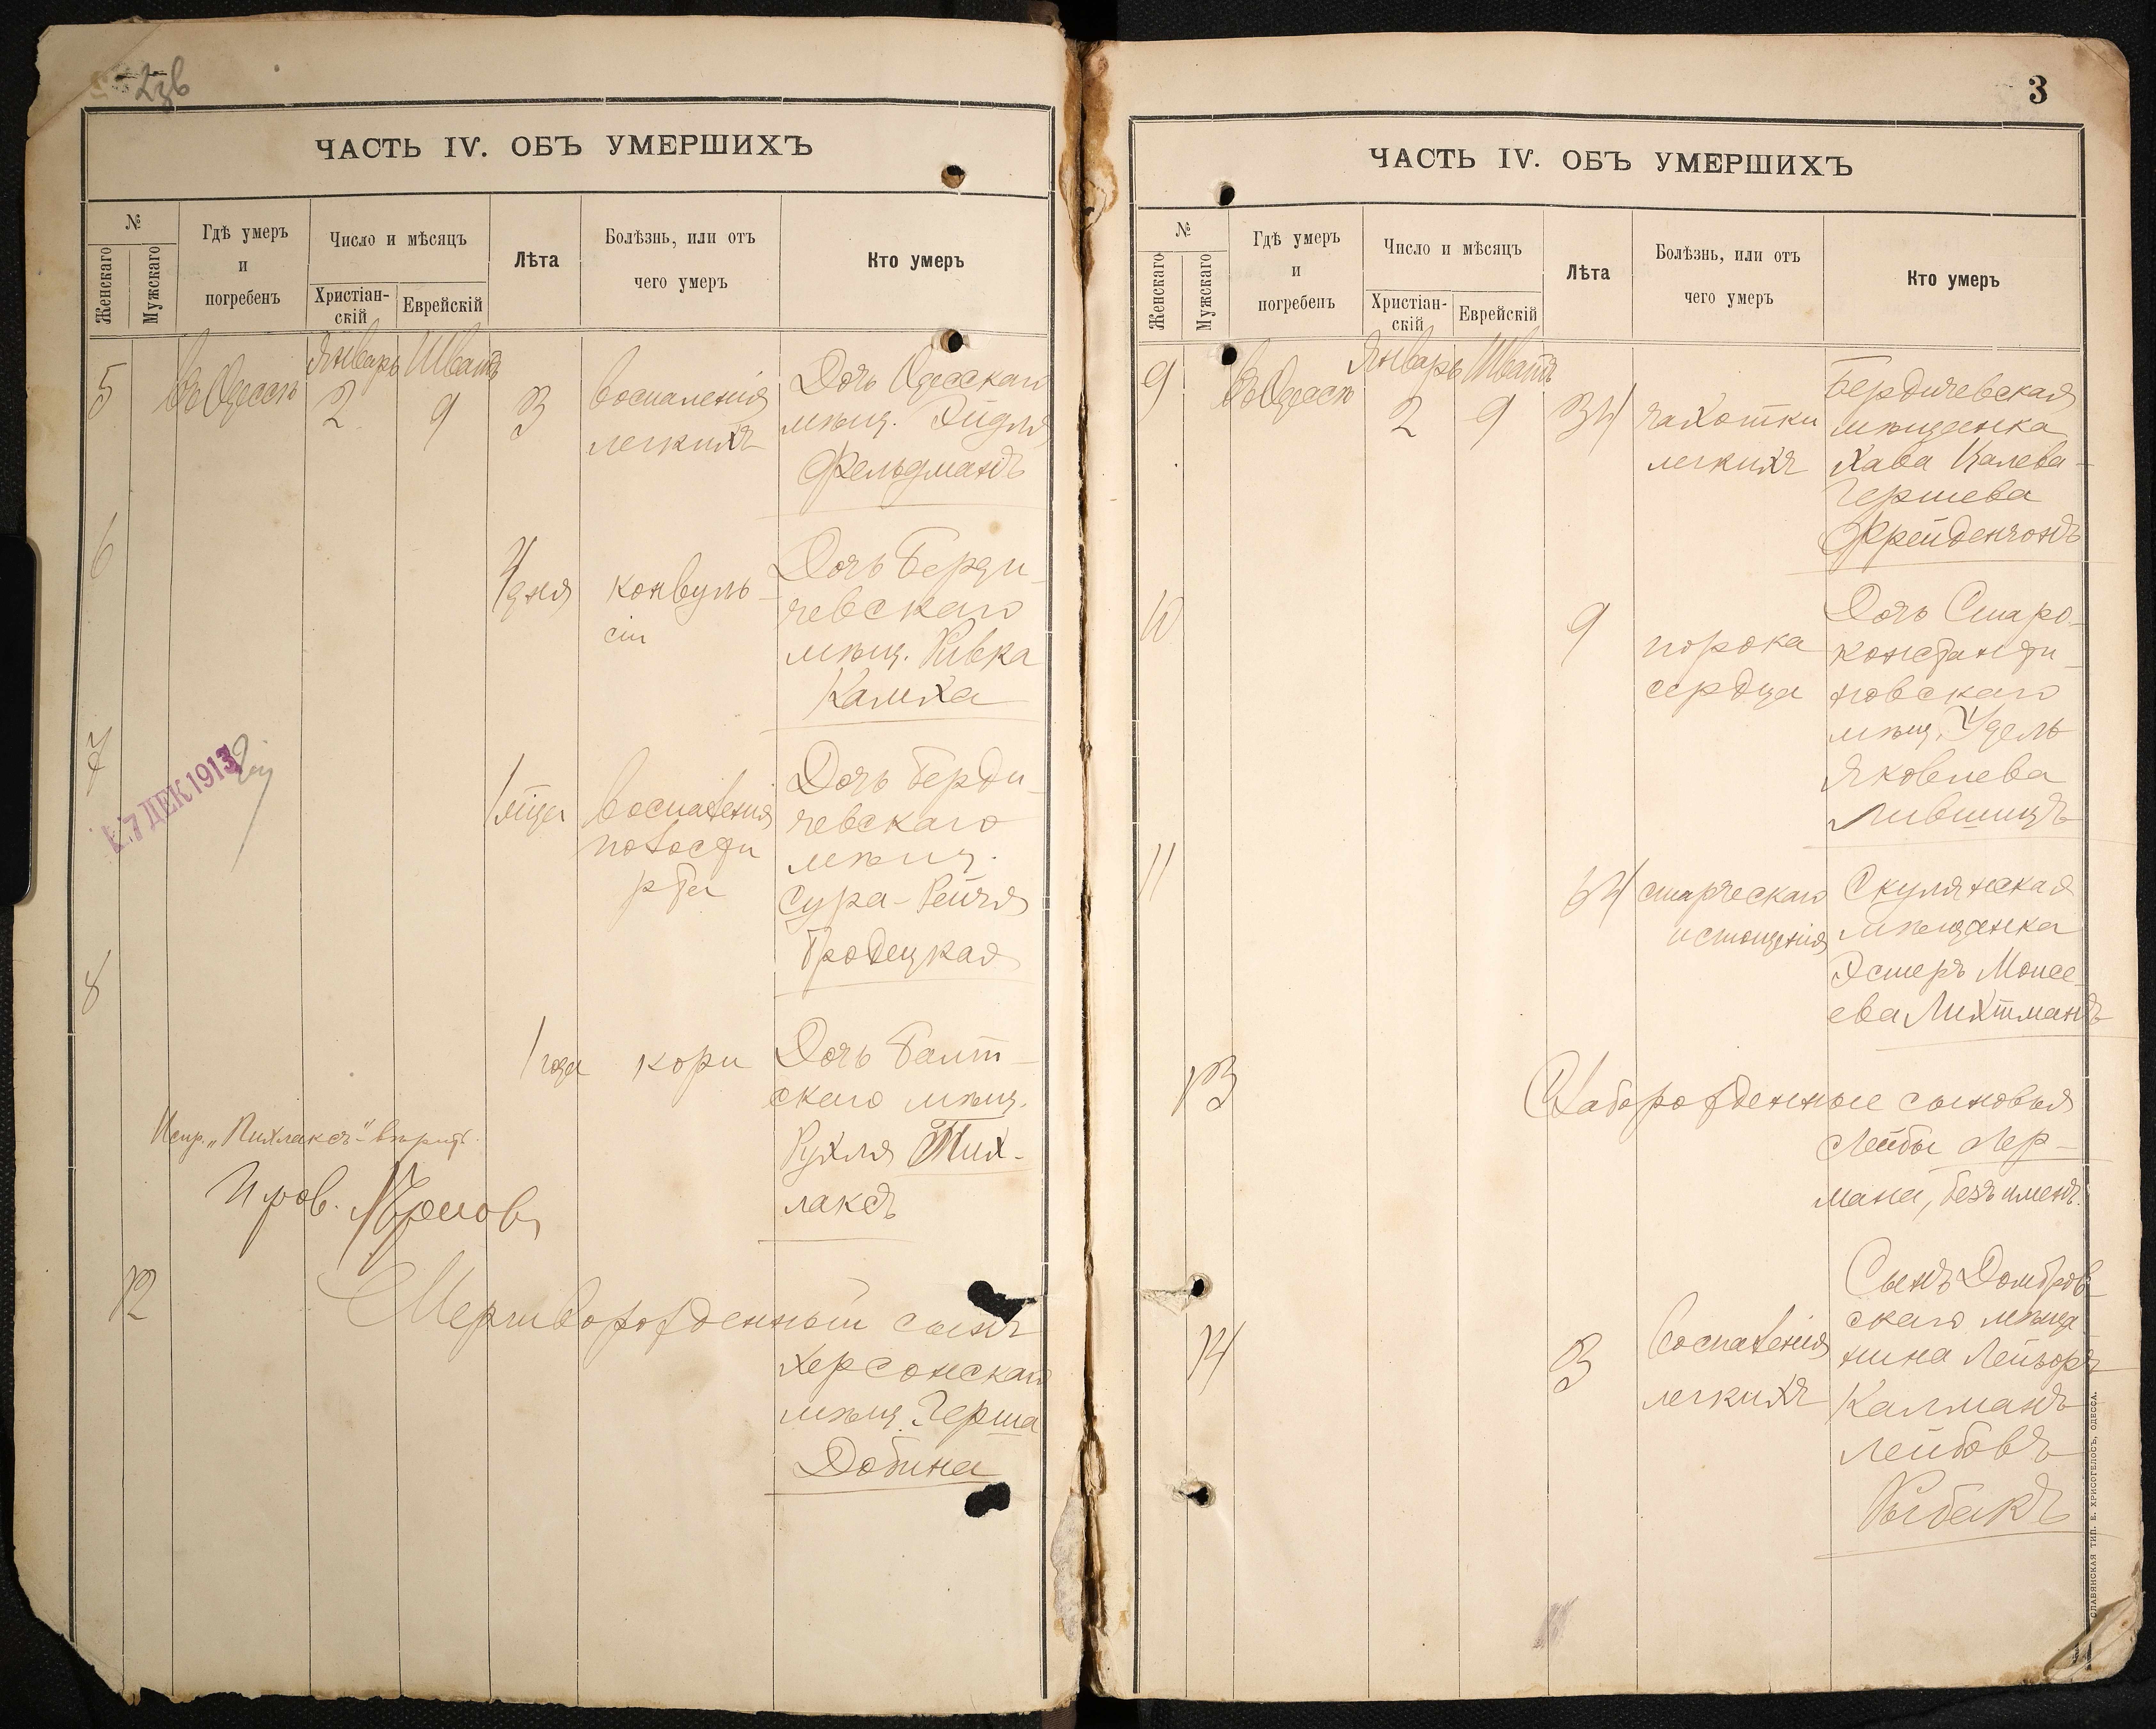 ЧАСТЬ IV. ОБЪ УМЕРШИХЪ
№
Женскаго
Мужскаго
Гдѣ умеръ
и
погребенъ
Число и мѣсяцъ
Христіан-
скій
Еврейскій
Лѣта
Болѣзнь, или отъ
чего умеръ
Кто умеръ
Январь Шватъ
5 въ Одессѣ 2 9 3
воспаленія
легкихъ
Дочь Одесскаго
мѣщ. Эйдля
Фельдманъ
6
4 дня
конвуль-
сіи
Дочь Берди-
чевскаго
мѣщ. Ривка
Камха
7
17 ДЕК 1913
воспаленія
полости
рта
Дочь Берди-
чевскаго
мѣщ.
Сура-Рейзя
Бродецкая
8
1 года кори
Дочь Балт-
скаго мѣщ.
Рухля Пих-
лаксъ
Испр. „Пихлаксъ" вѣрить.
12
Мертворожденный сынъ
Херсонскаго
мѣщ. Герша
Добина
3
ЧАСТЬ IV. ОБЪ УМЕРШИХЪ
№
Женскаго
Мужскаго
Гдѣ умеръ
и
погребенъ
Число и мѣсяцъ
Христіан-
скій
Еврейскій
Лѣта
Болѣзнь, или отъ
чего умеръ
Кто умеръ
Январь Шватъ
9 въ Одессѣ 2 9 34
чахотки
легкихъ
Бердичевская
мѣщанка
Хава Калева-
Гершева
Фрейдензонъ
10
9
порока
сердца
Дочь Старо-
константи-
новскаго
мѣщ. Удель
Яковлева
Лившицъ
11
64
старческаго
истощенія
Скулянская
мѣщанка
Эстеръ Моисе-
ева Лихтманъ
13
Слаборожденные сыновья
Лейбы Лер-
мана, безъ именъ.
14
3
воспаленія
легкихъ
Сынъ Домбров-
скаго мѣща-
нина Лейзоръ
Калманъ
Лейбовъ
Рыбакъ
СЛАВЯНСКАЯ ТИП. Е. ХРИСОГЕЛОСЪ, ОДЕССА.